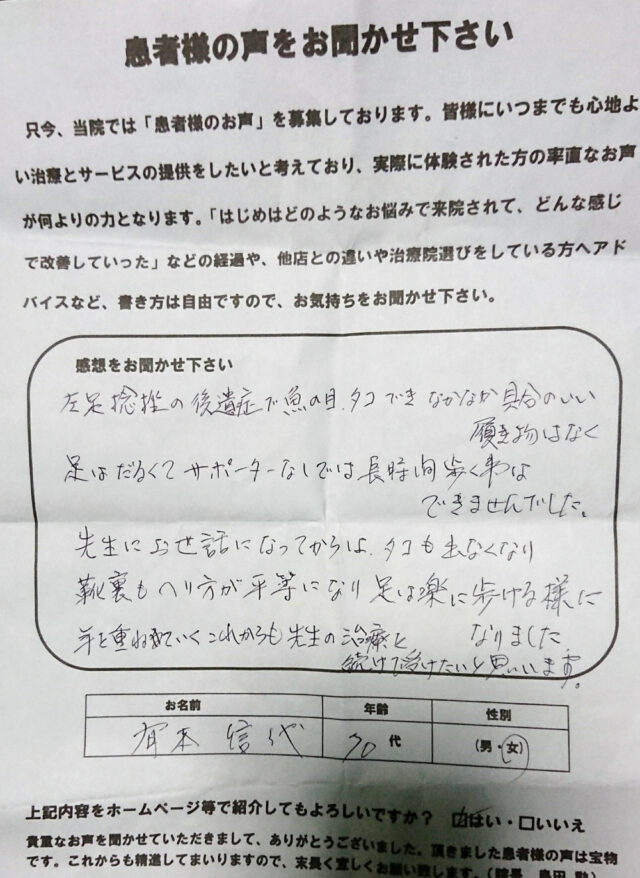 患者様の声をお聞かせ下さい
只今、当院では「患者様のお声」を募集しております。皆様にいつまでも心地よ
い治療とサービスの提供をしたいと考えており、実際に体験された方の率直なお声
が何よりの力となります。「はじめはどのようなお悩みで来院されて、どんな感じ
で改善していった」などの経過や、他店との違いや治療院選びをしている方へアド
バイスなど、書き方は自由ですので、お気持ちをお聞かせ下さい。
感想をお聞かせ下さい
左足捻挫の後遺症で魚の目、タコでき なかなか具合のいい
履き物はなく
足はだるくてサポーターなしでは長時間歩く事は
できませんでした。
先生にお世話になってからは、タコも出なくなり
靴裏もヘり方が平等になり足は楽に歩ける様に
なりました
年を重ねていくこれからも先生の治療を
続けて受けたいと思いいます。
お名前 年齢 性別
本 信代 70代 (男・女)
上記内容をホームページ等で紹介してもよろしいですか? ☑はい・□いいえ
貴重なお声を聞かせていただきまして、ありがとうございました。頂きました患者様の声は宝物
です。これからも精進してまいりますので、末長く宜しくお願い致します。(院長 島田